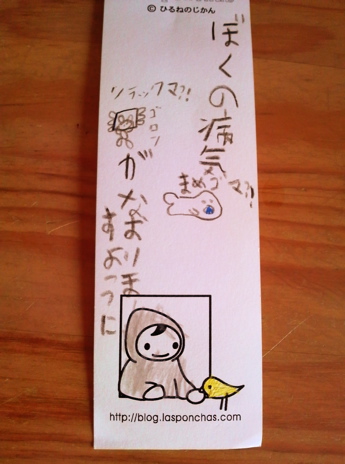 © ひるねのじかん
ぼくの病気
まめゴマ?!
リラックマ?!
ゴロン
がなおりま
すように
http://blog.lasponchas.com